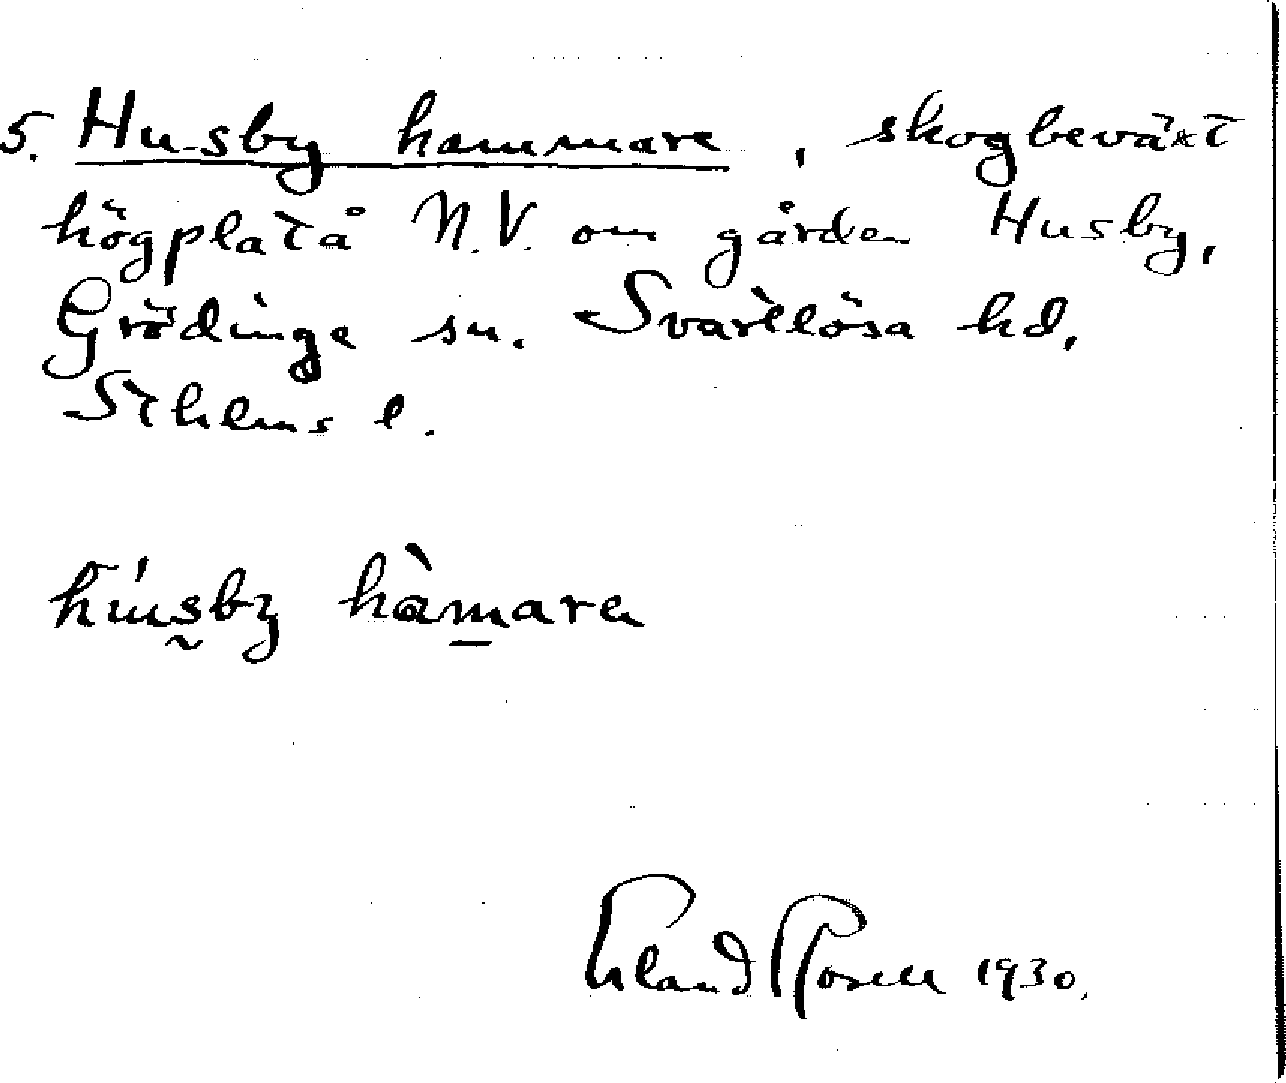 5. Husby hammare, skogbeväxt
högplatå N.V. om gården Husby,
Grödinge sn. Svartlösa hd.
Sthlms l.
húsby hàmaren
Erland Rosell 1930.